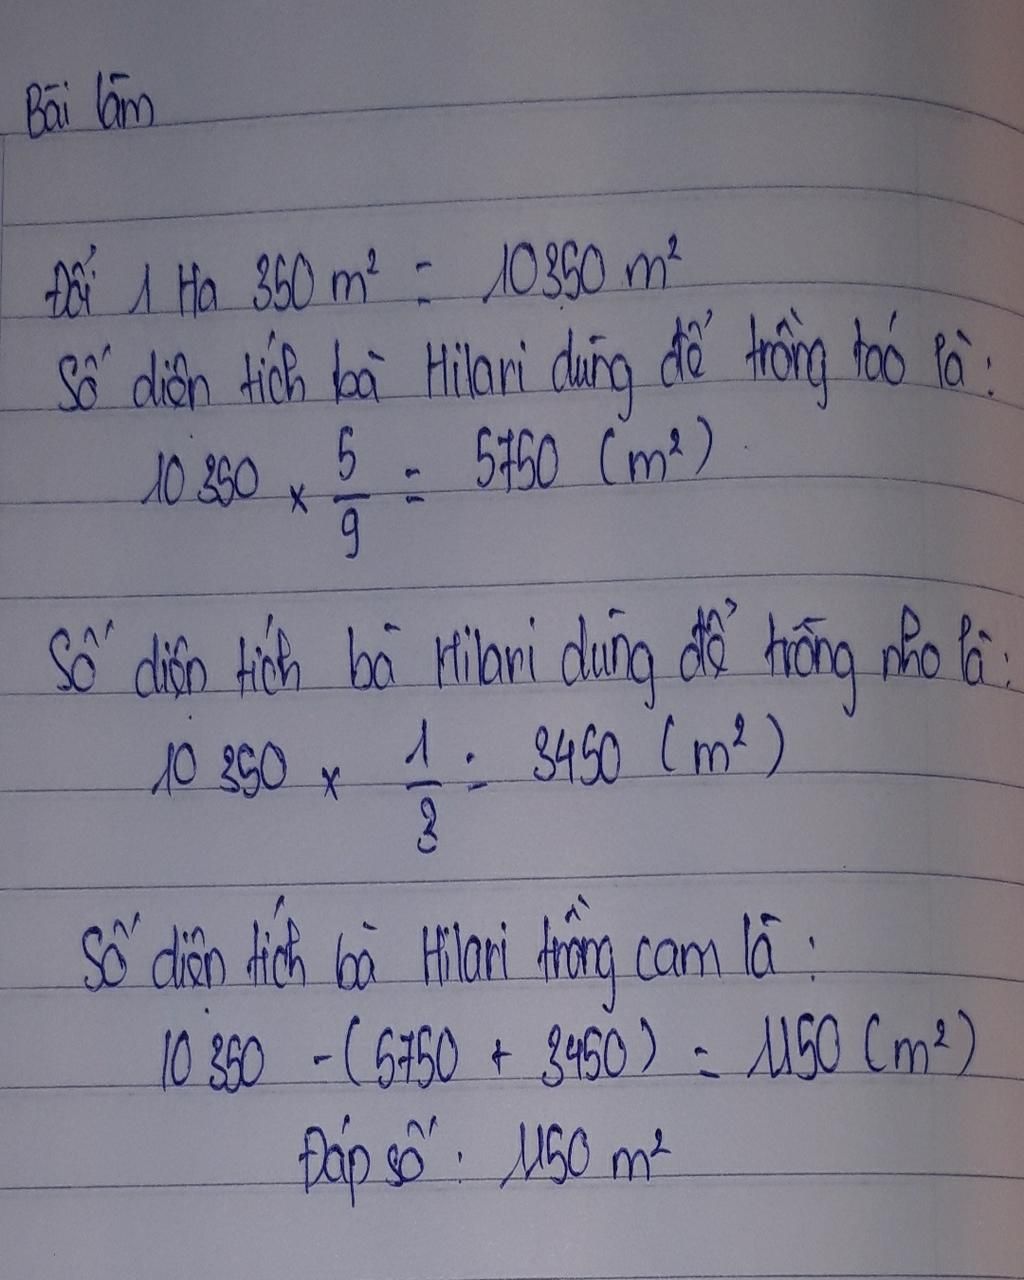 Bài làm
Đổi 1 Ha 350 m² = 10350 m²
Số diện tích bà Hilari dùng để trồng táo là:
10 350 × 5/9 = 5750 (m²)
Số diện tích bà Hilari dùng để trồng nho là:
10 350 × 1/3 = 3450 (m²)
Số diện tích bà Hilari trồng cam là:
10 350 - (5750 + 3450) = 1150 (m²)
Đáp số: 1150 m²